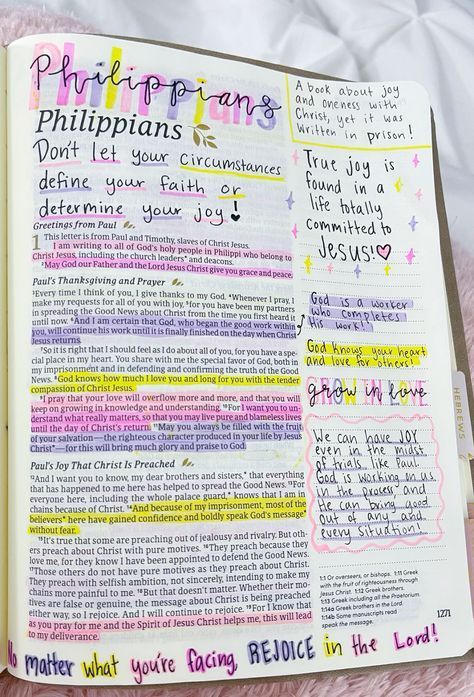 Philippians
Philippians
Don't let your circumstances
define your faith or
determine your joy!
Greetings from Paul
1 This letter is from Paul and Timothy, slaves of Christ Jesus.
I am writing to all of God's holy people in Philippi who belong to
Christ Jesus, including the church leaders* and deacons.
2 May God our Father and the Lord Jesus Christ give you grace and peace.
Paul's Thanksgiving and Prayer
3 Every time I think of you, I give thanks to my God. 4 Whenever I pray, I
make my requests for all of you with joy, 5 for you have been my partners
in spreading the Good News about Christ from the time you first heard it
until now. 6 And I am certain that God, who began the good work within
you, will continue his work until it is finally finished on the day when Christ
Jesus returns.
7 So it is right that I should feel as I do about all of you, for you have a spe-
cial place in my heart. You share with me the special favor of God, both in
my imprisonment and in defending and confirming the truth of the Good
News. 8 God knows how much I love you and long for you with the tender
compassion of Christ Jesus.
9 I pray that your love will overflow more and more, and that you will
keep on growing in knowledge and understanding. 10 For I want you to un-
derstand what really matters, so that you may live pure and blameless lives
until the day of Christ's return. 11 May you always be filled with the fruit
of your salvation—the righteous character produced in your life by Jesus
Christ*—for this will bring much glory and praise to God.
Paul's Joy That Christ Is Preached
12 And I want you to know, my dear brothers and sisters,* that everything
that has happened to me here has helped to spread the Good News. 13 For
everyone here, including the whole palace guard,* knows that I am in
chains because of Christ. 14 And because of my imprisonment, most of the
believers* here have gained confidence and boldly speak God's message*
without fear.
15 It's true that some are preaching out of jealousy and rivalry. But oth-
ers preach about Christ with pure motives. 16 They preach because they
love me, for they know I have been appointed to defend the Good News.
17 Those others do not have pure motives as they preach about Christ.
They preach with selfish ambition, not sincerely, intending to make my
chains more painful to me. 18 But that doesn't matter. Whether their mo-
tives are false or genuine, the message about Christ is being preached
either way, so I rejoice. And I will continue to rejoice. 19 For I know that
as you pray for me and the Spirit of Jesus Christ helps me, this will lead
to my deliverance.
A book about joy
and oneness with
Christ, yet it was
written in prison!
True joy is
found in a
life totally
committed to
JESUS!
God is a worker
who completes
His work!
God knows your heart
and love for others!
grow in love
We can have JOY
even in the midst
of trials, like Paul.
God is working in us
in the process, and
He can bring good
out of any and
every situation!
1:1 Or overseers, or bishops. 1:11 Greek
with the fruit of righteousness through
Jesus Christ. 1:12 Greek brothers.
1:13 Greek including all the Praetorium.
1:14a Greek brothers in the Lord.
1:14b Some manuscripts read
speak the message.
1271
HEBREWS
No matter what you're facing, REJOICE in the Lord!